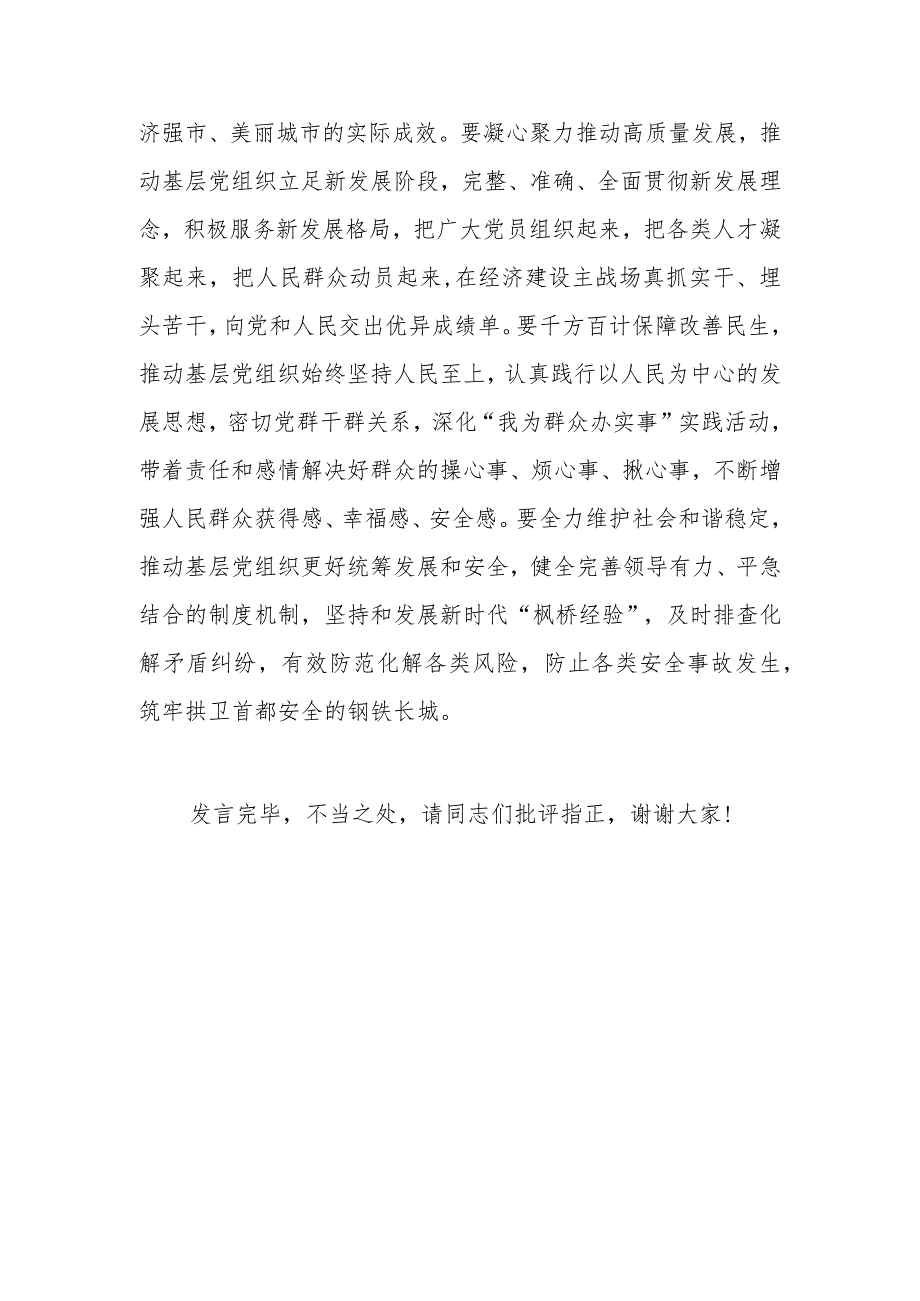 济强市、美丽城市的实际成效。要凝心聚力推动高质量发展，推
动基层党组织立足新发展阶段，完整、准确、全面贯彻新发展理
念，积极服务新发展格局，把广大党员组织起来，把各类人才凝
聚起来，把人民群众动员起来,在经济建设主战场真抓实干、埋
头苦干，向党和人民交出优异成绩单。要千方百计保障改善民生，
推动基层党组织始终坚持人民至上，认真践行以人民为中心的发
展思想，密切党群干群关系，深化“我为群众办实事”实践活动，
带着责任和感情解决好群众的操心事、烦心事、揪心事，不断增
强人民群众获得感、幸福感、安全感。要全力维护社会和谐稳定，
推动基层党组织更好统筹发展和安全，健全完善领导有力、平急
结合的制度机制，坚持和发展新时代“枫桥经验”，及时排查化
解矛盾纠纷，有效防范化解各类风险，防止各类安全事故发生，
筑牢拱卫首都安全的钢铁长城。
发言完毕，不当之处，请同志们批评指正，谢谢大家!